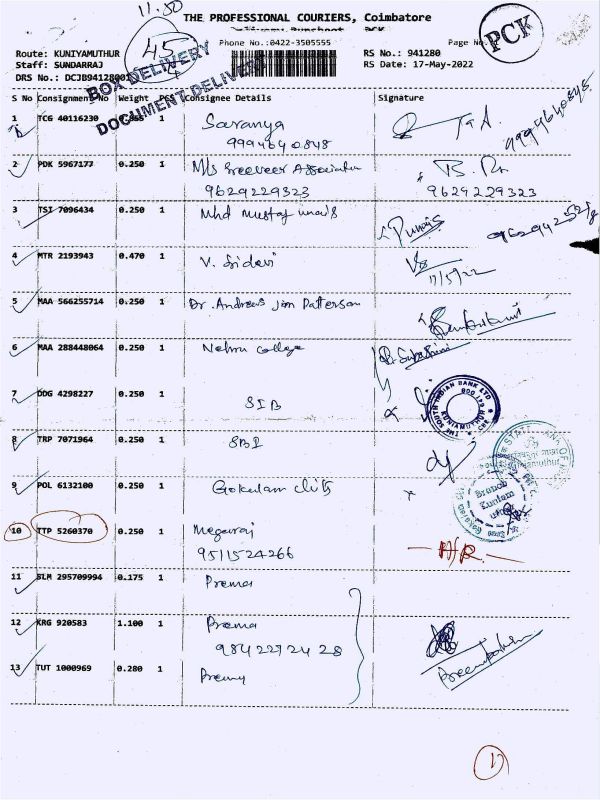 11.50
THE PROFESSIONAL COURIERS, Coimbatore
Phone No.:0422-3505555
Page No
PCK
Route: KUNIYAMUTHUR
45
RS No.: 941280
Staff: SUNDARRAJ
RS Date: 17-May-2022
DRS No.: DCJB94128001
BOX DELIVERY
DOCUMENT DELIVERY
S No Consignment No Weight PCS Consignee Details Signature
1 TCG 40116230 1 Saranya
9994640848 9994640848
2 PDK 5967177 0.250 1 M/s Sreeveer Associates
9629229323 9629229323
3 TSI 7096434 0.250 1 Mhd Mustaf
4 MTR 2193943 0.470 1 V. Sridevi
17/5/22
5 MAA 566255714 0.250 1 Dr. Andrews Jim Patterson
6 MAA 288448064 0.250 1 Nehru College
7 DDG 4298227 0.250 1 SIB
THE SOUTH INDIAN BANK LTD
KUNIAMUTHUR
8 TRP 7071964 0.250 1 SBI
9 POL 6132100 0.250 1 Gokulam
Branch
10 TTP 5260370 0.250 1 Megaraj
9511524266
11 SLM 295709994 0.175 1 Prema
12 KRG 920583 1.100 1 Prema
9842272428
13 TUT 1000969 0.280 1 Prema